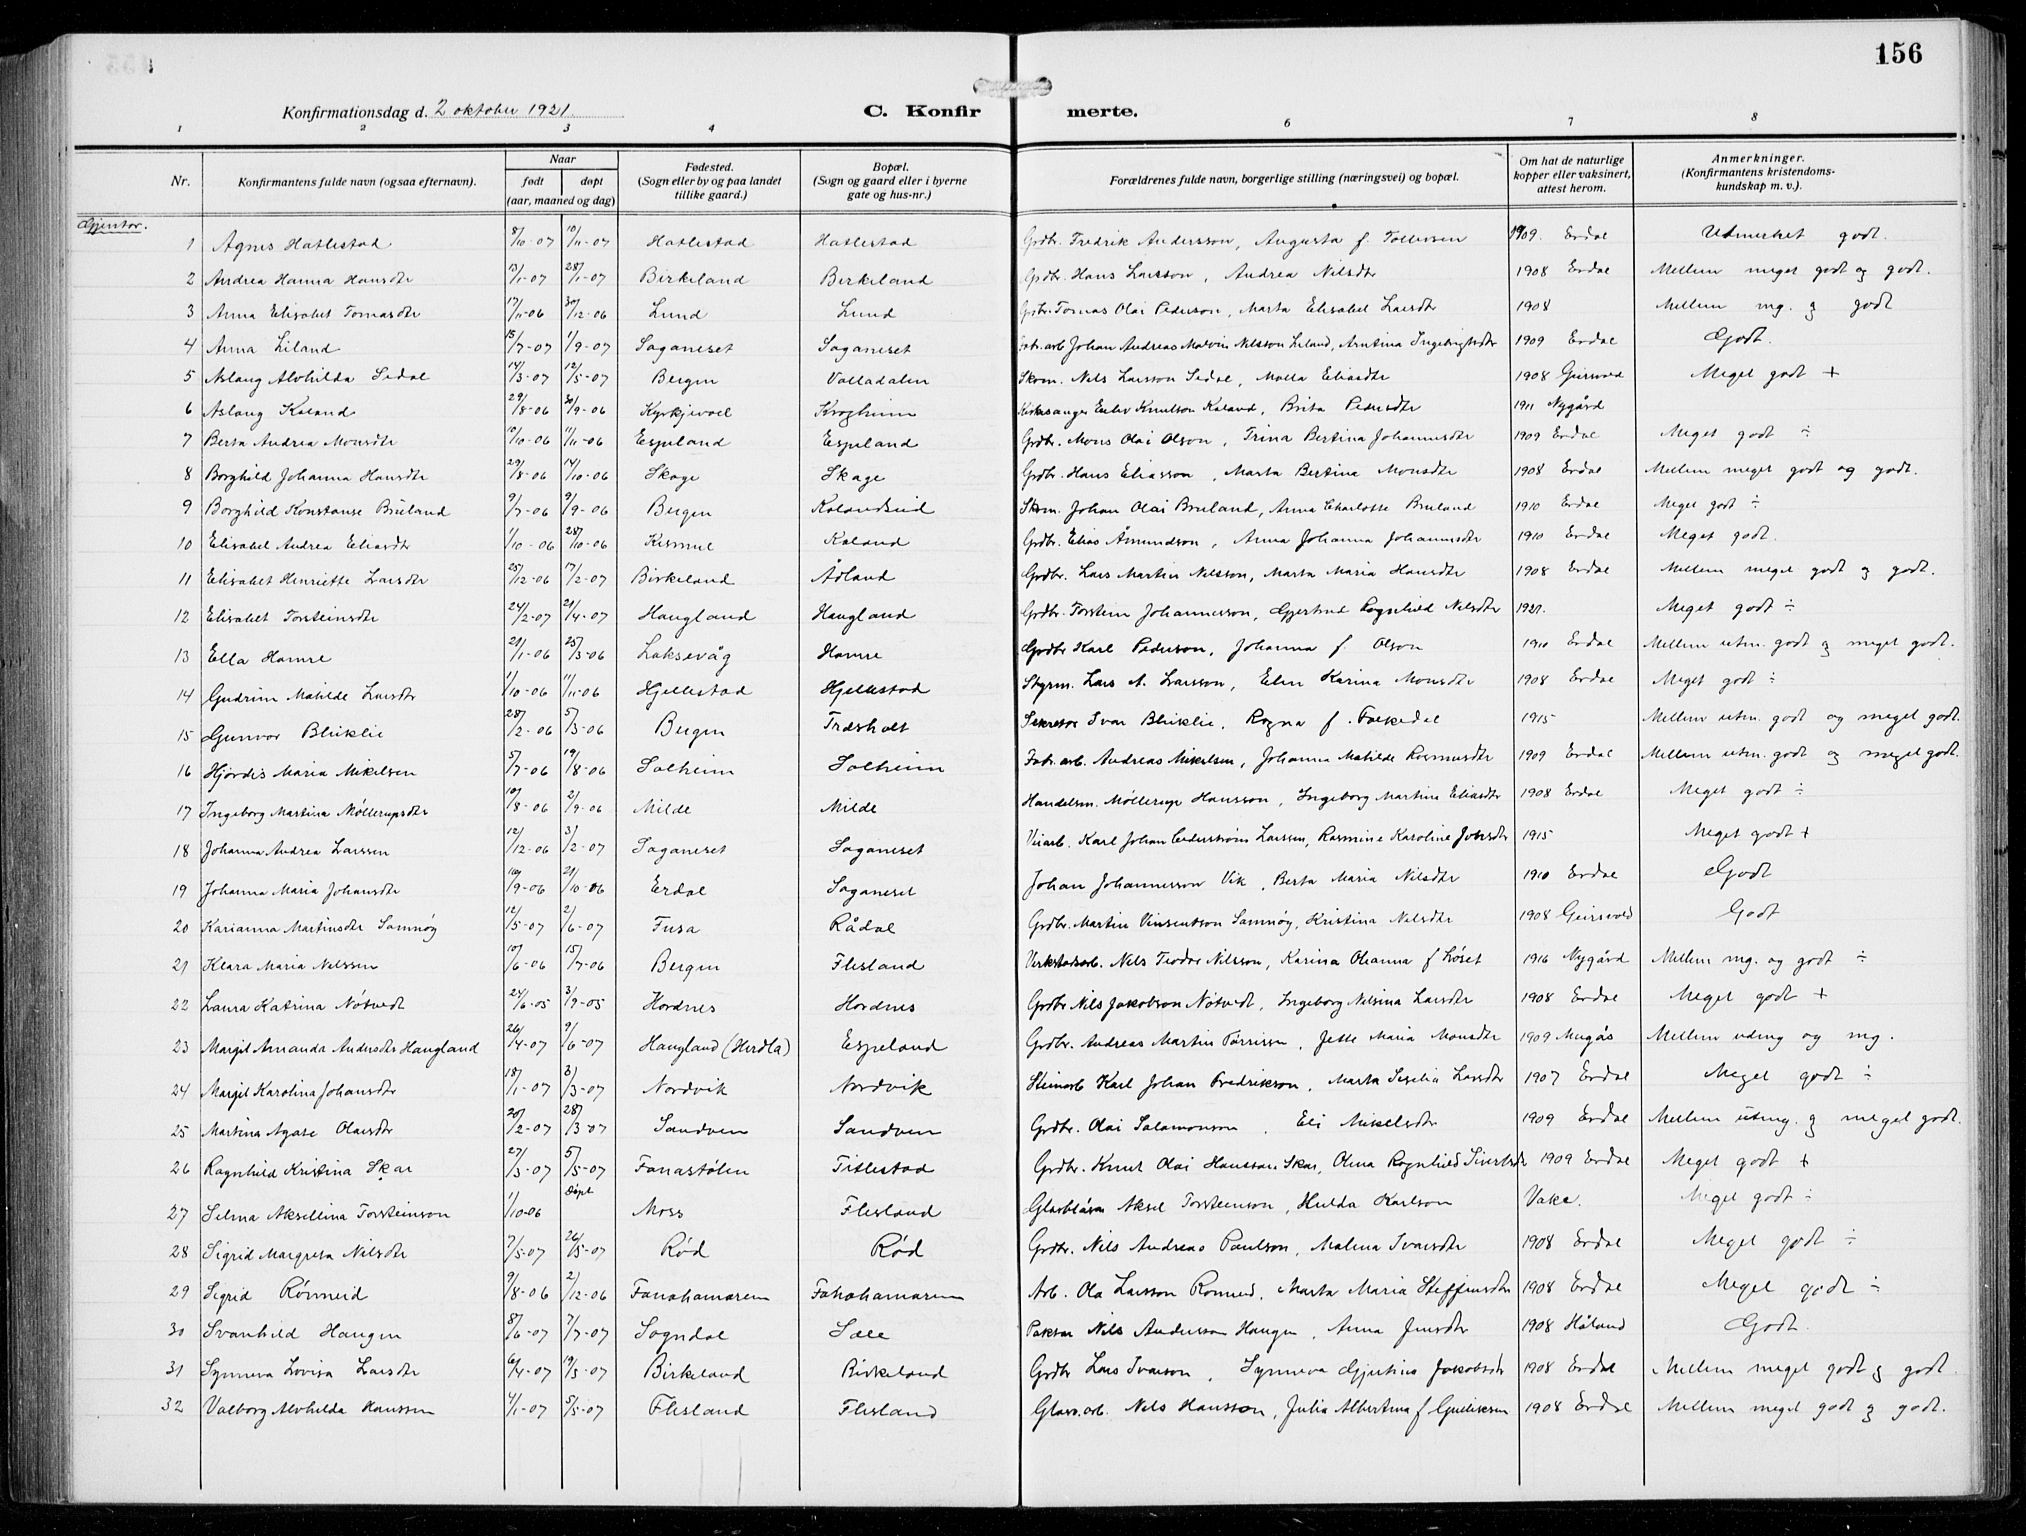 156
Konfirmationsdag d. 2 oktober 1921 C. Konfirmerte.
1 2 3 4 5 6 7 8
Nr. Konfirmantens fulde navn (ogsaa efternavn). Naar født døpt (aar, maaned og dag) Fødested. (Sogn eller by og paa landet tillike gaard.) Bopæl. (Sogn og gaard eller i byerne gate og hus-nr.) Forældrenes fulde navn, borgerlige stilling (næringsvei) og bopæl. Om hat de naturlige kopper eller vaksinert, attest herom. Anmerkninger. (Konfirmantens kristendomskundskap m. v.).
Gjenter.
1 Agnes Hatlestad 8/10-07 10/11-07 Hatlestad Hatlestad Grdbr. Fredrik Andersson, Augusta f. Tollevsen 1909. Erdal Udmerket godt.
2 Andrea Hanna Hansdtr 13/1-07 28/1-07 Birkeland Birkeland Grdbr. Hans Larsson, Andrea Nilsdtr 1908 Erdal Mellem meget godt og godt.
3 Anna Elisabet Tomasdtr 17/11-06 30/12-06 Lund Lund Grdbr. Tomas Olai Pederson, Marta Elisabet Larsdtr 1908 Mellem mg. og godt
4 Anna Liland 15/7-07 1/9-07 Søganeset Søganeset Fabr.arb Johan Andreas Malvin Nilsson Liland, Arntina Ingebrigtsdtr 1909 Erdal Godt.
5 Aslaug Alvhilda Sedal 14/3-07 12/5-07 Bergen Valladalen Skom. Nils Larsson Sedal, Malla Eliasdtr 1908 Geirsvold Meget godt +
6 Aslaug Kaland 29/8-06 30/9-06 Kyrkjevoll Krogheim Kirkesanger Enlev Knutson Kaland, Brita Pedersdtr 1911 Nygård
7 Berta Andrea Monsdtr 10/10-06 11/11-06 Espeland Espeland Grdbr. Mons Olai Olson, Trina Bertina Johannesdtr 1909 Erdal Meget godt ÷
8 Borghild Johanna Hansdtr 29/8-06 14/10-06 Skage Skage Grdbr. Hans Eliasson, Marta Bertina Monsdtr 1908 Erdal Mellem meget godt og godt.
9 Borghild Konstanse Bruland 9/7-06 9/9-06 Bergen Kalandseid Skom. Johan Olai Bruland, Anna Charlotte Bruland 1910 Erdal Meget godt ÷
10 Elisabet Andrea Eliasdtr 1/10-06 28/10-06 Kismul Kaland Grdbr. Elias Åmundson, Anna Johanna Johannesdtr 1910 Erdal Meget godt.
11 Elisabet Henriette Larsdtr 25/12-06 17/2-07 Birkeland Ådland Grdbr. Lars Martin Nilsson, Marta Maria Hansdtr 1908 Erdal Mellem meget godt og godt.
12 Elisabet Torsteinsdtr 24/2-07 21/4-07 Haugland Haugland Grdbr. Torstein Johannesson, Gjertrud Ragnhild Nilsdtr 1921. Meget godt ÷
13 Ella Hamre 21/1-06 25/3-06 Laksevåg Hamre Grdbr Karl Pederson, Johanna f. Olson 1910 Erdal Mellem utm. godt og meget godt.
14 Gudrun Matilde Larsdtr 1/10-06 11/11-06 Hjellestad Hjellestad Styrm. Lars A. Larsson, Elen Karina Monsdtr 1908 Erdal Meget godt ÷
15 Gunvor Bleiklie 28/2-06 5/3-06 Bergen Træsholt Sekretær Ivar Bleiklie, Ragna f. Falkedal 1915 Mellem utm. godt og meget godt.
16 Hjördis Maria Mikelsen 5/7-06 19/8-06 Solheim Solheim Fabr. arb. Andreas Mikelsen, Johanna Matilde Rasmusdtr 1909 Erdal Mellem utm. godt og meget godt.
17 Ingeborg Martina Møllerupsdtr 10/8-06 2/9-06 Milde Milde Handelsm. Møllerup Hansson, Ingeborg Martina Eliasdtr 1908 Erdal Meget godt ÷
18 Johanna Andrea Larssen 12/12-06 3/2-07 Søganeset Søganeset Veiarb. Karl Johan Cederstrøm Larssen, Rasmine Karoline Jonsdtr 1915 Meget godt +
19 Johanna Maria Johansdtr 16/9-06 21/10-06 Erdal Søganeset Johan Johannesson Vik, Berta Maria Nilsdtr 1910 Erdal Godt
20 Karianna Martinsdtr Samnøy 12/5-07 2/6-07 Fusa Rådal Grdbr. Martin Vinsentson Samnøy, Kristina Nilsdtr 1908 Geirsvold Godt
21 Klara Maria Nilssen 10/6-06 15/7-06 Bergen Flesland Verkstadsarb. Nils Teodor Nilsson, Karina Olianna f Løset 1916 Nygård Mellem mg. og godt ÷
22 Laura Katrina Nøtvedt 24/6-05 3/9-05 Hordnes Hordnes Grdbr Nils Jakobson Nøtvedt, Ingeborg Nilsina Larsdtr 1908 Erdal Meget godt +
23 Margit Amanda Andersdtr Haugland 26/4-07 9/6-07 Haugland (Herdla) Espeland Grdbr. Andreas Martin Tørrisson, Jette Maria Monsdtr 1909 Mugås Mellem udmg og mg.
24 Margit Karolina Johansdtr 18/1-07 3/3-07 Nordvik Nordvik Steinarb Karl Johan Fredrikson, Marta Seselia Larsdtr 1907 Erdal Meget godt ÷
25 Martina Agate Olaisdtr 20/2-07 28/3-07 Sandven Sandven Grdbr. Olai Salamonson, Eli Mikelsdtr 1909 Erdal Mellem utmg. og meget godt.
26 Ragnhild Kristina Skar 27/3-07 5/5-07 Fanastølen Titlestad Grdbr. Knut Olai Hansson Skar, Olina Ragnhild Sivertsdtr 1909 Erdal Meget godt +
27 Selma Aksellina Torsteinson 1/10-06 døpt Moss Flesland Glasblåser Aksel Torsteinson, Hulda Karlson Vakc. Meget godt ÷
28 Sigrid Margreta Nilsdtr 7/5-07 26/5-07 Rød Rød Grdbr. Nils Andreas Paulson, Malena Ivarsdtr 1908 Erdal Meget godt ÷
29 Sigrid Rönneid 9/8-06 2/12-06 Fanahamaren Fanahamaren Arb. Ola Larsson Rönneid, Marta Maria Steffensdtr 1908 Erdal Meget godt ÷
30 Svanhild Haugen 8/6-07 7/7-07 Sogndal Sæle Nils Anderson Haugen, Anna Jensdtr 1908 Håland Godt.
31 Synneva Lovisa Larsdtr 6/4-07 19/5-07 Birkeland Birkeland Grdbr Lars Ivarson, Synneva Gjertina Jakobsdtr 1908 Erdal Mellem meget godt og godt.
32 Valborg Alvhilda Hanssen 4/1-07 5/5-07 Flesland Flesland Glass.arb. Nils Hansson, Julia Albertina f Gulliksen 1908 Erdal Mellem meget godt og godt.